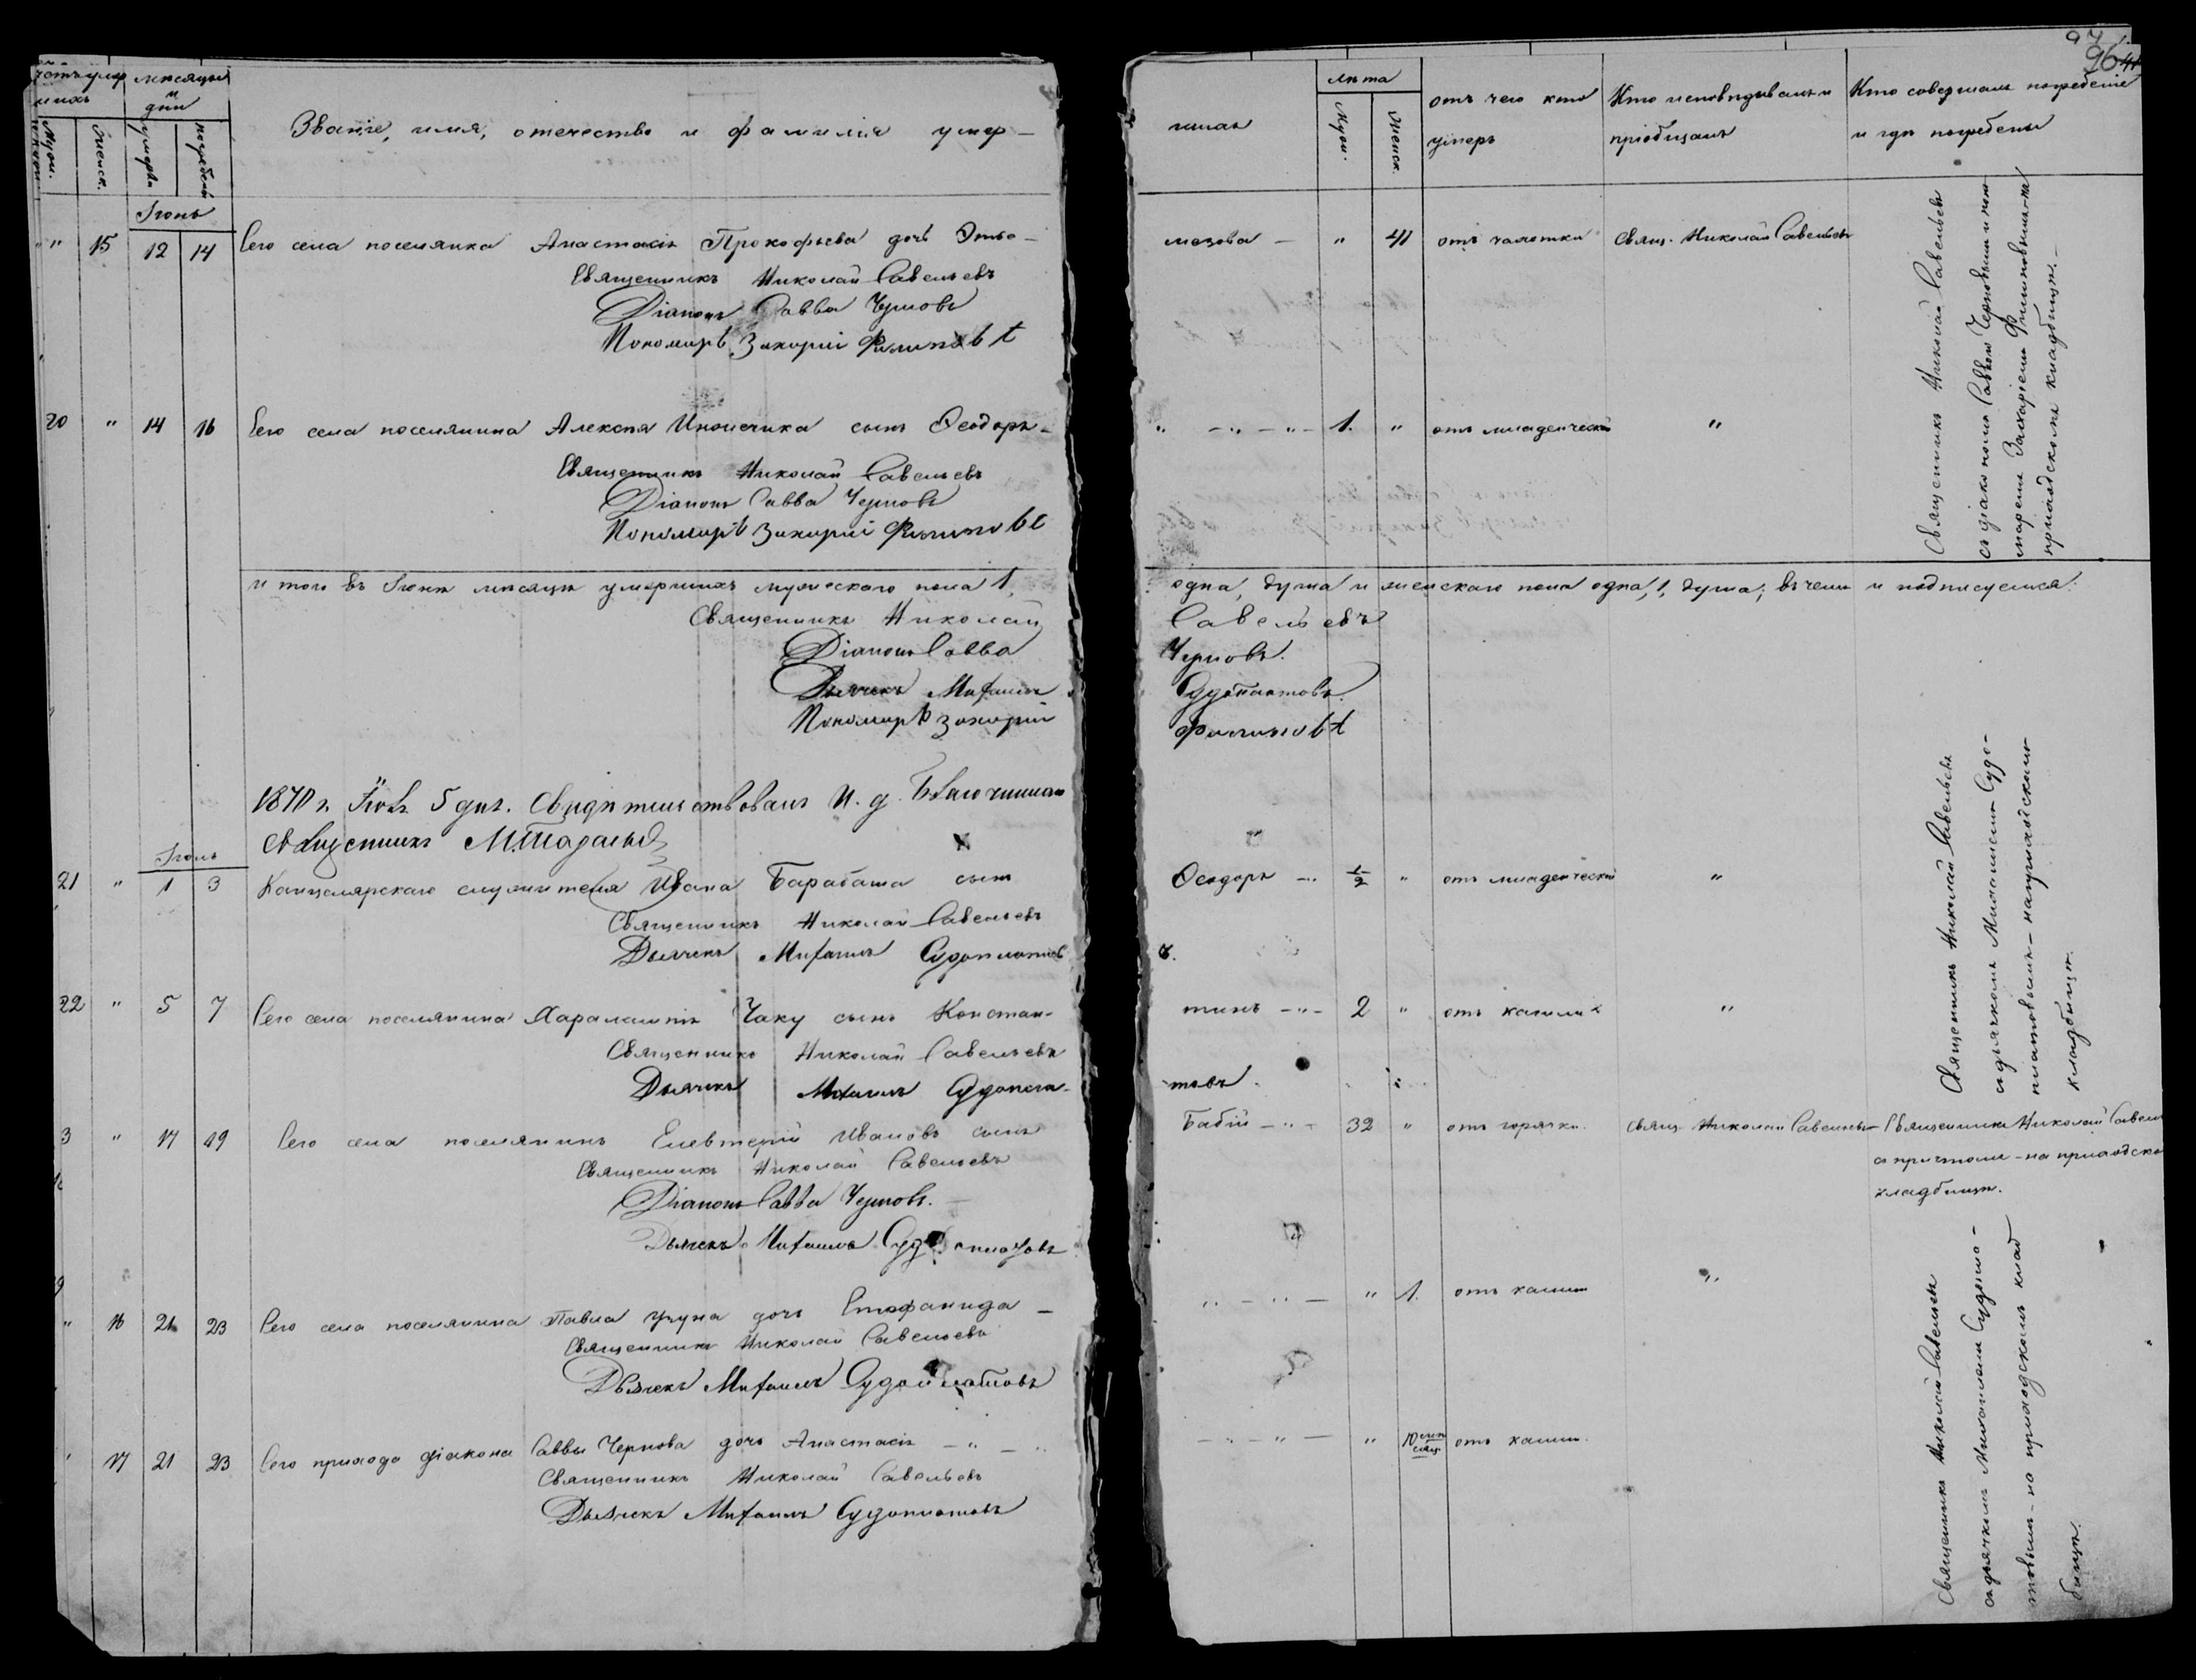 96
мѣсяцы
и
дни
Звание, имя, отечество и фамилія умер-
Муж.
Женск.
умерли
погребены
Іюнь
15 12 14 Сего села поселянка Анастасія Прокофьева дочь
Священникъ Николай Савельевъ
Діаконъ Савва Черновъ
Пономарь Захарій Филиповъ
20 " 14 16 Сего села поселянина Алексѣя сынъ Ѳеодоръ-
Священникъ Николай Савельевъ
Діаконъ Савва Черновъ
Пономарь Захарій Филиповъ
и того въ Іюнѣ мѣсяцѣ умершихъ мужескаго пола 1,
Священникъ Николай
Діаконъ Савва
Дьячекъ Михаилъ
Пономарь Захарій
1870 г. Іюля 5 дня. Свидѣтельствовалъ И. д. Благочиннаго
Священникъ
Іюль
21 " 1 3 Канцелярскаго служителя Ивана Барабаша сынъ
Священникъ Николай Савельевъ
Дьячекъ Михаилъ Судоплатов
22 " 5 7 Сего села поселянина Харалампія Чаку сынъ Констан-
Священникъ Николай Савельевъ
Дьячекъ Михаилъ Судопла-
3 " 17 19 Сего села поселянинъ Елевтерій Ивановъ сынъ
Священникъ Николай Савельевъ
Діаконъ Савва Черновъ.
Дьячекъ Михаилъ Судоплатовъ
" 16 21 23 Сего села поселянина Павла Узуна дочь Стефанида -
Священникъ Николай Савельевъ
Дьячекъ Михаилъ Судоплатовъ
" 17 21 23 Сего прихода діакона Саввы Чернова дочь Анастасія - " -
Священникъ Николай Савельевъ
Дьячекъ Михаилъ Судоплатовъ
шихъ
лѣта
Муж.
Женск.
отъ чего кто
умеръ
Кто исповѣдывалъ и
пріобщалъ
Кто совершалъ погребеніе
и гдѣ погребены
- " 41 отъ чахотки Свящ. Николай Савельевъ
" - " - " - 1. " отъ младенческой "
Священникъ Николай Савельевъ
съ діакономъ Саввою Черновымъ и поно-
маремъ Захаріемъ Филиповымъ-на
приходскомъ кладбищѣ.-
одна, душа и женскаго пола одна, 1, душа; въ чемъ и подписуемся:
Савельевъ
Черновъ.
Судоплатовъ.
Филиповъ
Ѳеодоръ - 1/2 " отъ младенческой "
ъ.
тинъ - " - 2 " отъ кашля "
товъ.
Священникъ Николай Савельевъ
съ дьячкомъ Михаиломъ Судо-
платовымъ-на приходскомъ
кладбищѣ.
Бабій - " - 32 " отъ горячки. Свящ. Николай Савельевъ- Священникъ Николай Савел
съ причтомъ - на приходско
кладбищѣ.
" - " - " 1. отъ кашля "
- " - " - " 10 мѣсяц. отъ кашля.
Священникъ Николай Савельевъ
съ дьячкомъ Михаиломъ Судопла-
товымъ-на приходскомъ клад
бищѣ.